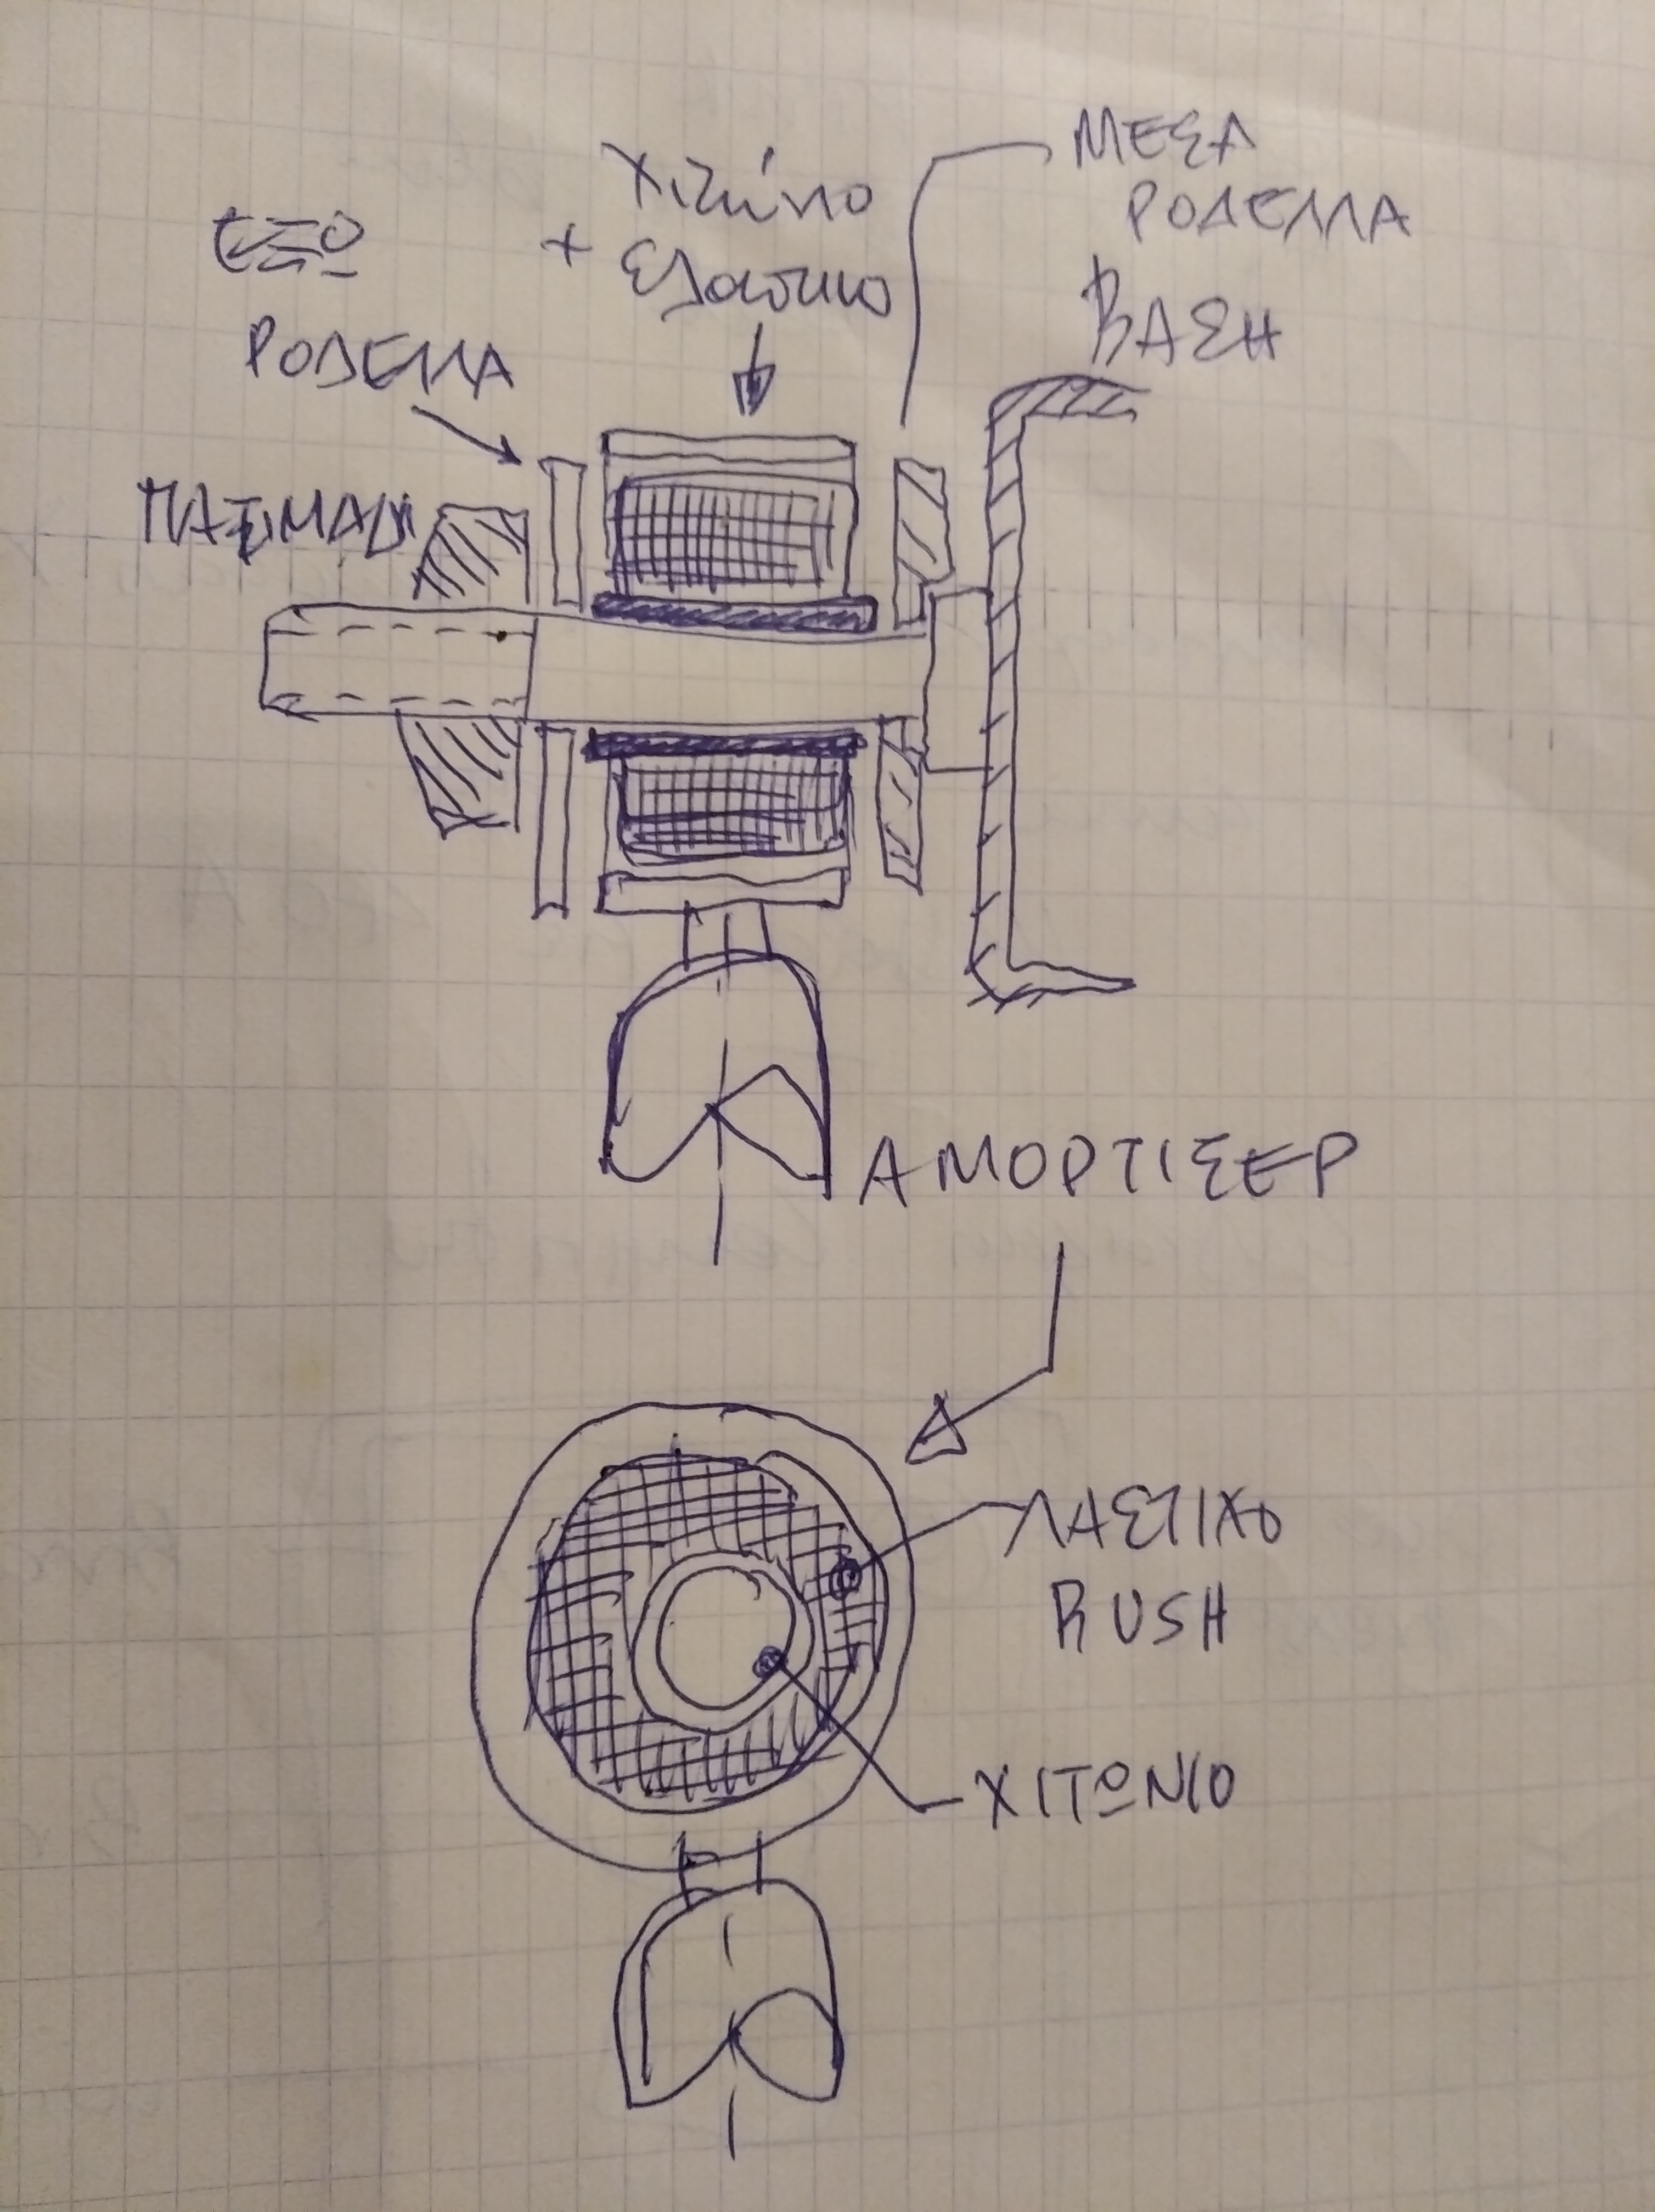 ΜΕΣΑ
ΡΟΔΕΛΛΑ
χιτώνιο
+ ελαστικο
ΕΞΩ
ΡΟΔΕΛΛΑ
ΒΑΣΗ
ΠΑΞΙΜΑΔΙ
ΑΜΟΡΤΙΣΕΡ
ΛΑΣΤΙΧΟ
BUSH
ΧΙΤΩΝΙΟ